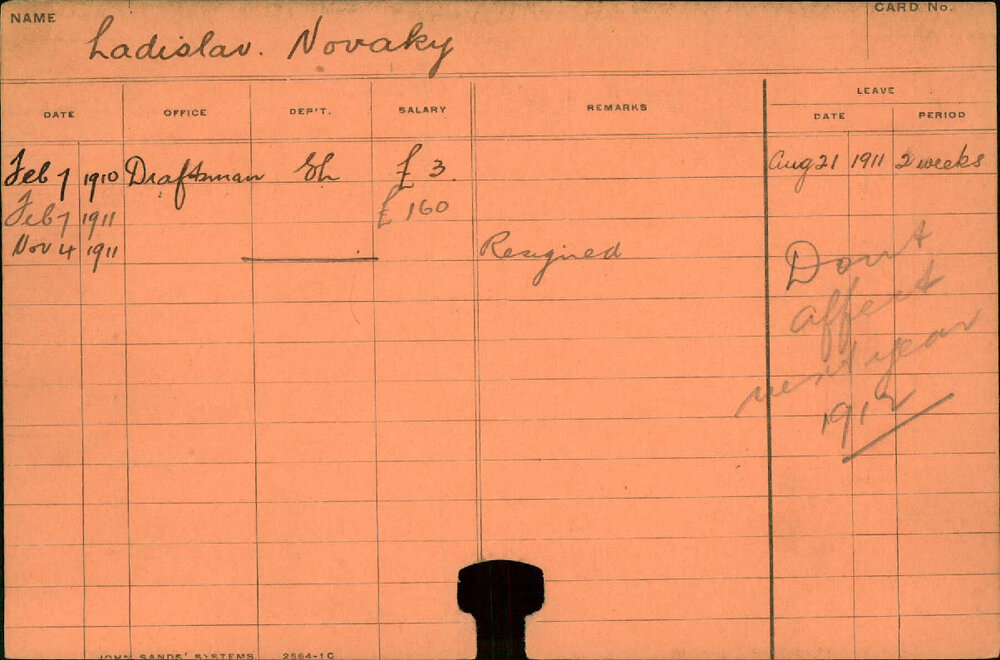 NAME
CARD No.
Ladislav. Novaky
LEAVE
DATE OFFICE DEP'T. SALARY REMARKS DATE PERIOD
Feb 7 1910 Draftsman £ 3. Aug 21 1911 2 weeks
Feb 7 1911 £ 160
Nov 4 1911 Resigned
Don't
affect
next year
1912
JOHN SANDS' SYSTEMS 2564-1C